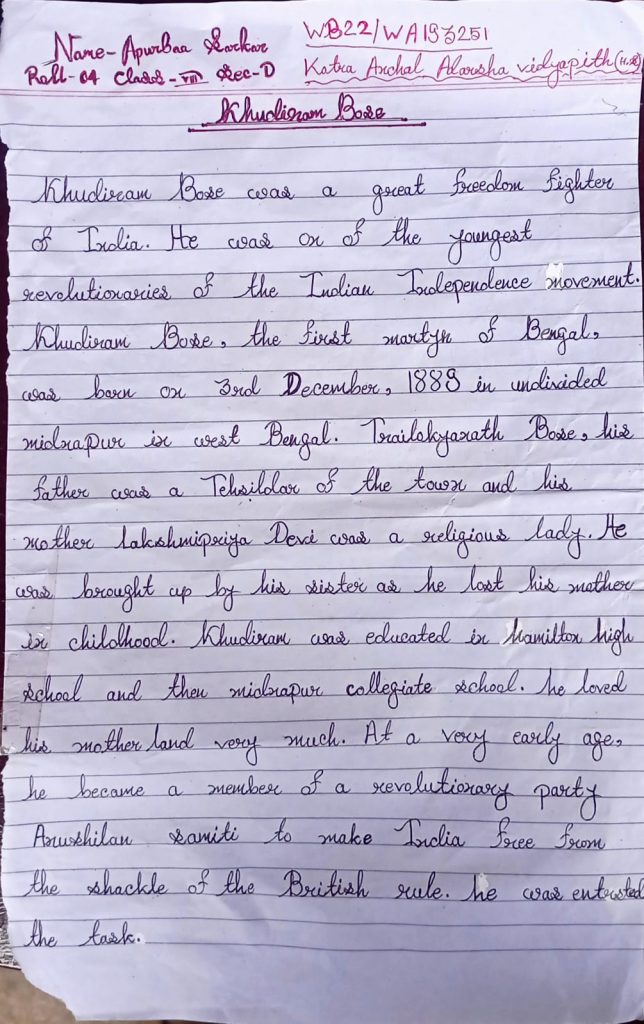 Name- Apurbaa Sarkar
WB22/WA193251
Roll-04 Class-VIII Sec-D
Katra Anchal Adarsha vidyapith (H.S)
Khudiram Bose
Khudiram Bose was a great freedom fighter
of India. He was on of the youngest
revolutionaries of the Indian Independence movement.
Khudiram Bose, the first martyr of Bengal,
was born on 3rd December, 1889 in undivided
midnapur in west Bengal. Trailokyanath Bose, his
father was a Tehsildar of the town and his
mother Lakshmipriya Devi was a religious lady. He
was brought up by his sister as he lost his mother
in childhood. Khudiram was educated in hamilton high
school and then midnapur collegiate school. he loved
his mother land very much. At a very early age,
he became a member of a revolutionary party
Anushilan samiti to make India free from
the shackle of the British rule. he was entrusted
the task.